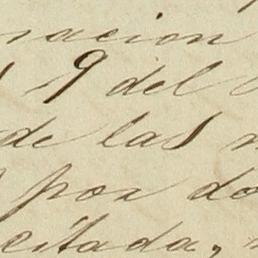 nacion
9 del
de las
por do
citada,